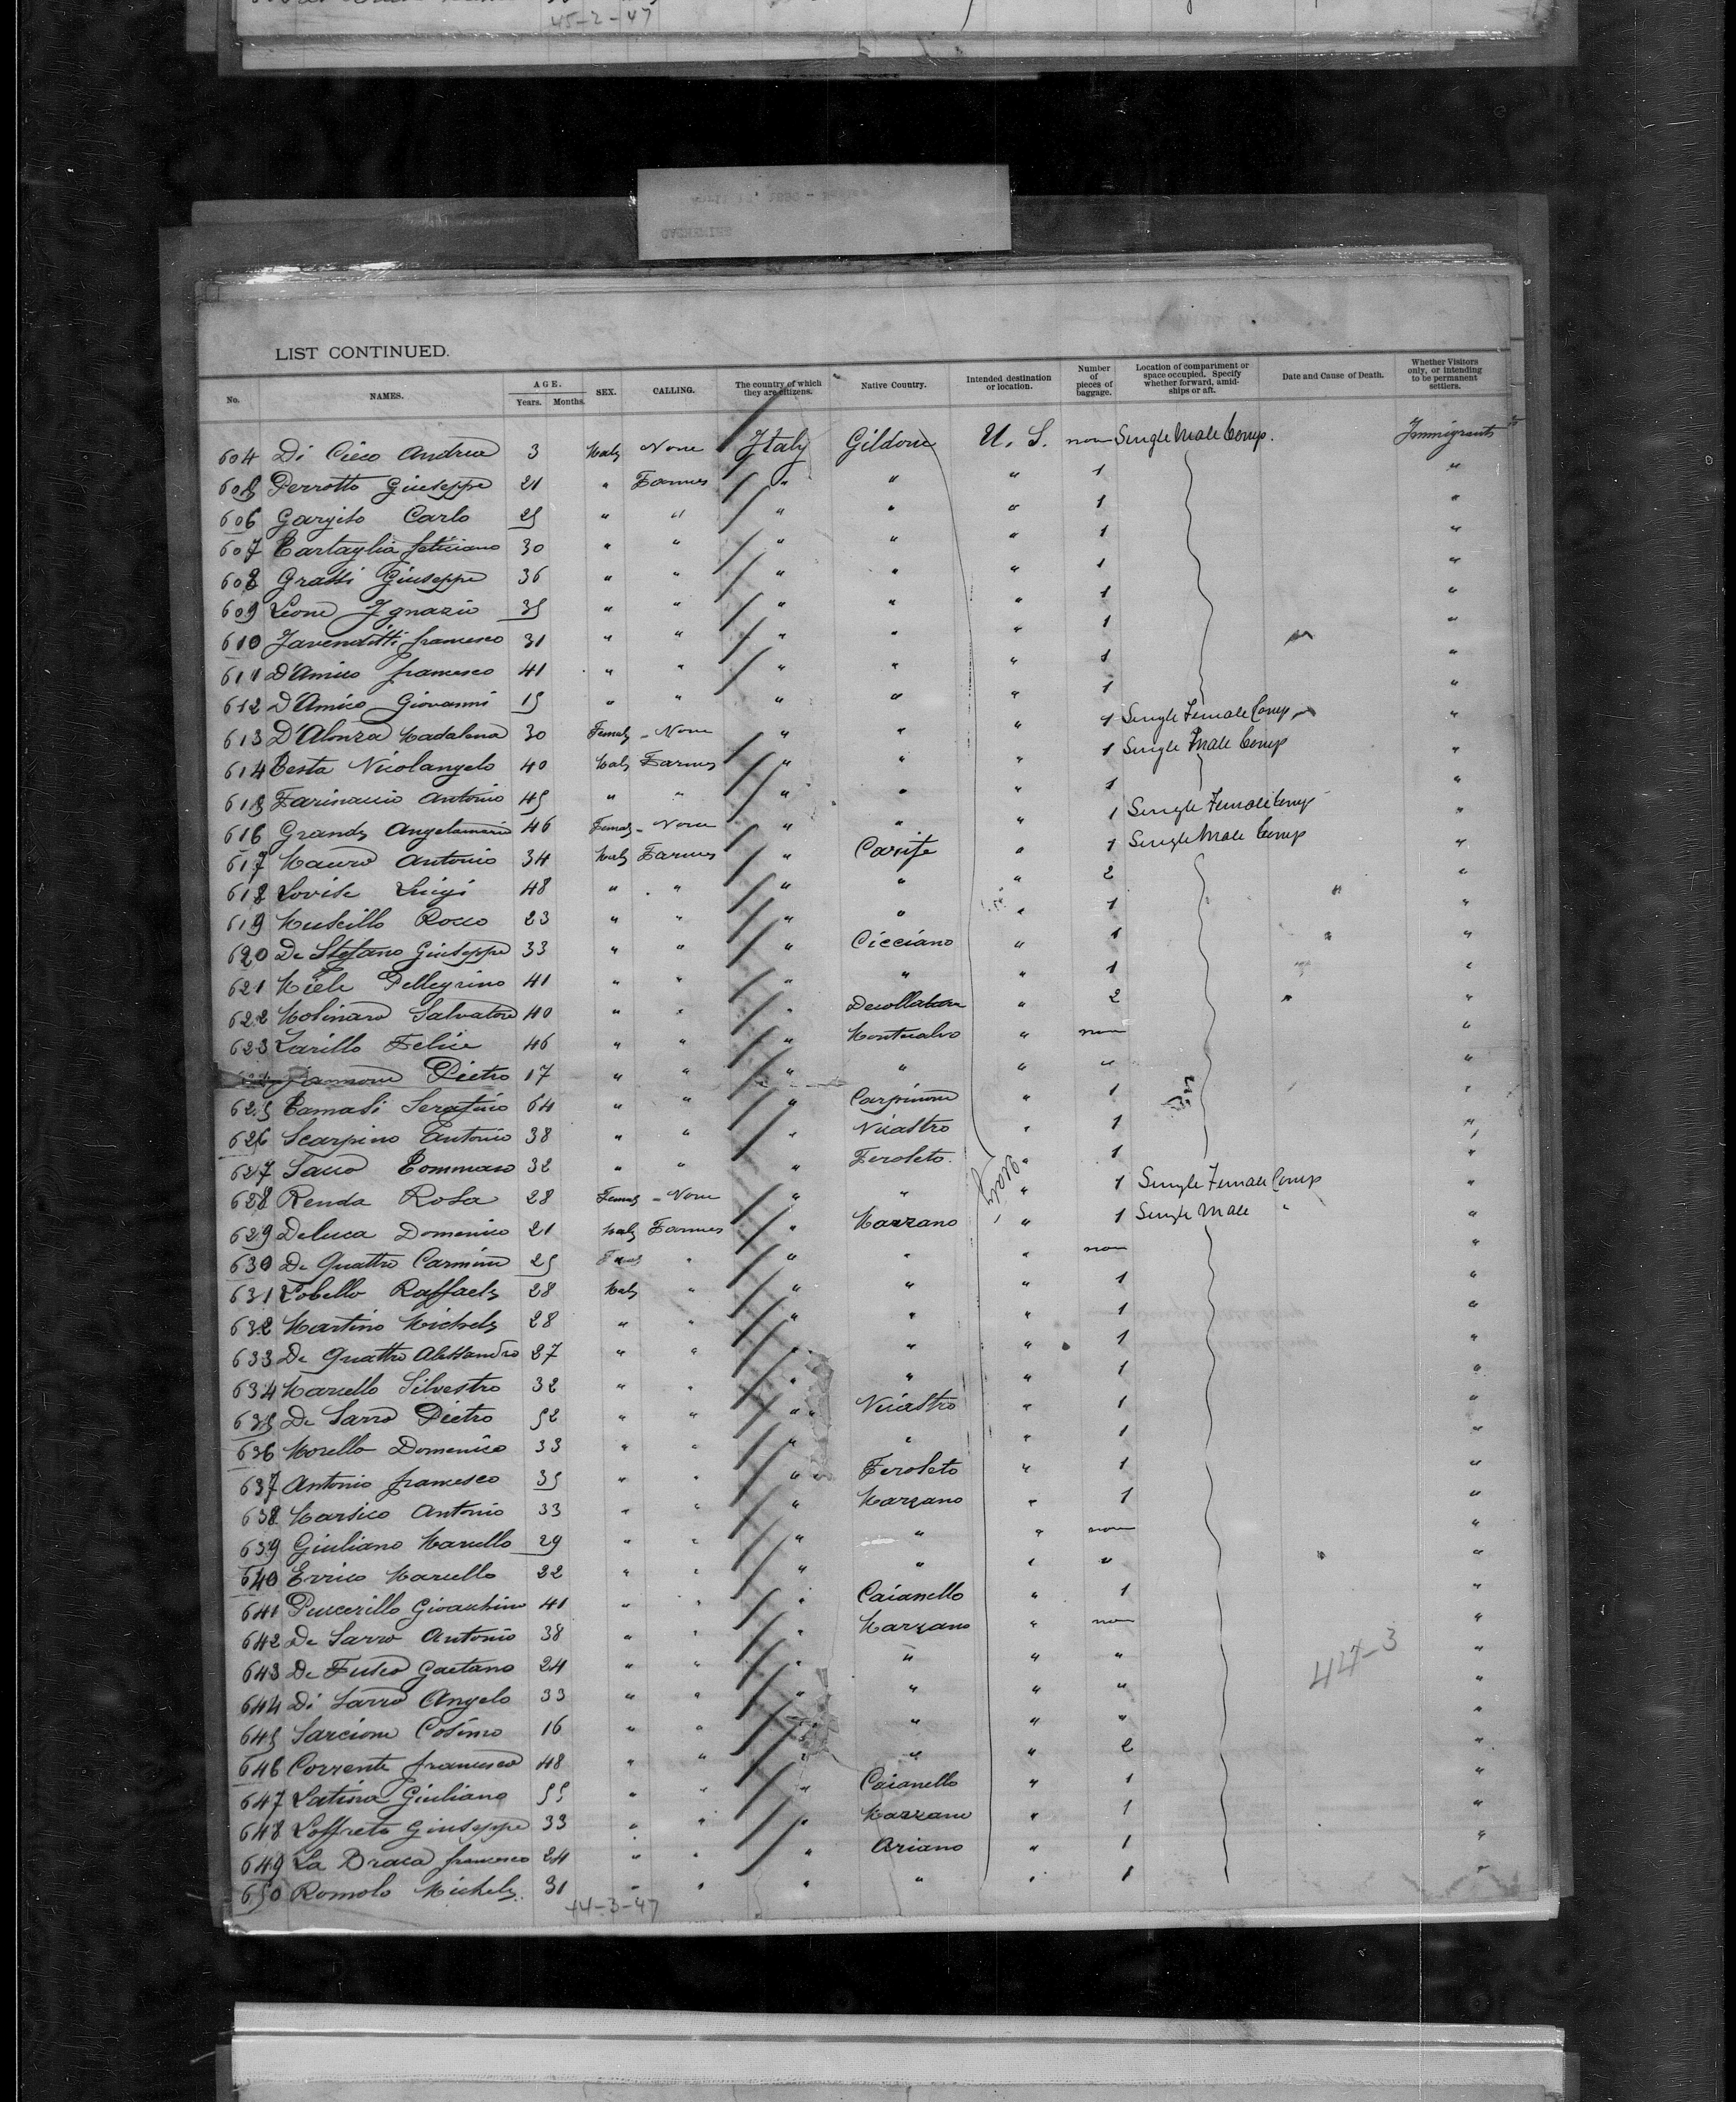 45-2-47
LIST CONTINUED.
No. NAMES. AGE. Years. Months. SEX. CALLING. The country of which they are citizens. Native Country. Intended destination or location. Number of pieces of baggage. Location of compartment or space occupied. Specify whether forward, amidships or aft. Date and Cause of Death. Whether Visitors only, or intending to be permanent settlers.
604 Di Cieco Andrea 3 Male None Italy Gildone U. S. none Single Male Comp. Immigrants
605 Perrotto Giuseppe 21 " Farmer " " " 1 "
606 Carlo 25 " " " " " 1 "
607 Tartaglia feliciano 30 " " " " " 1 "
608 Grassi Giuseppe 36 " " " " " 1 "
609 Leone Ignazio 35 " " " " " 1 "
610 francesco 31 " " " " " 1 "
611 D'Amico francesco 41 " " " " " 1 "
612 D'Amico Giovanni 15 " " " " " 1 "
613 D'Alonzo Madalena 30 Female None " " " 1 Single Female Comp "
614 Testa Nicolangelo 40 Male Farmer " " " 1 Single Male Comp "
615 Farinaccio Antonio 45 " " " " " 1 "
616 Grande Angelamaria 46 Female None " " " 1 Single Female Comp "
617 Mauro Antonio 34 Male Farmer " Carife " 1 Single Male Comp "
618 Lovise Luigi 48 " " " " " 2 "
619 Muscillo Rocco 23 " " " " " 1 "
620 De Stefano Giuseppe 33 " " " Cicciano " 1 "
621 Miele Pellegrino 41 " " " " " 1 "
622 Molinaro Salvatore 40 " " " Decollatura " 2 "
623 Zarillo Felice 46 " " " Montecalvo " none "
Pietro 17 " " " " " " "
625 Tamasi Serafino 64 " " " Carpinone " 1 "
626 Scarpino Antonio 38 " " " Nicastro " 1 "
627 Sacco Tommaso 32 " " " Feroleto. " 1 "
628 Renda Rosa 28 Female None " " " 1 Single Female Comp "
629 Deluca Domenico 21 Male Farmer " Marzano " 1 Single Male " "
630 De Quattro Carmine 25 " " " " none "
631 Lobello Raffaele 28 Male " " " " 1 "
632 Martino Michele 28 " " " " " 1 "
633 De Quattro Alessandro 27 " " " " " 1 "
634 Marcello Silvestro 32 " " " " " 1 "
635 De Sarro Pietro 52 " " " Nicastro " 1 "
636 Morello Domenico 33 " " " " " 1 "
637 Antonio francesco 35 " " " Feroleto " 1 "
638 Marsico Antonio 33 " " " Marzano " 1 "
639 Giuliano Marcello 29 " " " " " none "
640 Errico Marcello 22 " " " " " " "
641 Pinccerillo Gioacchino 41 " " " Caianello " 1 "
642 De Sarro Antonio 38 " " " Marzano " none "
643 De Fusco Gaetano 24 " " " " " " "
644 Di Sarro Angelo 33 " " " " " " "
645 Sarcione Cosimo 16 " " " " " " "
646 Corrente francesco 48 " " " " " 2 "
647 Latina Giuliano 55 " " " Caianello " 1 "
648 Loffreto Giuseppe 33 " " " Marzano " 1 "
649 La Braca francesco 24 " " " Ariano " 1 "
650 Romolo Michele 31 " " " " " 1 "
44-3
44-3-47